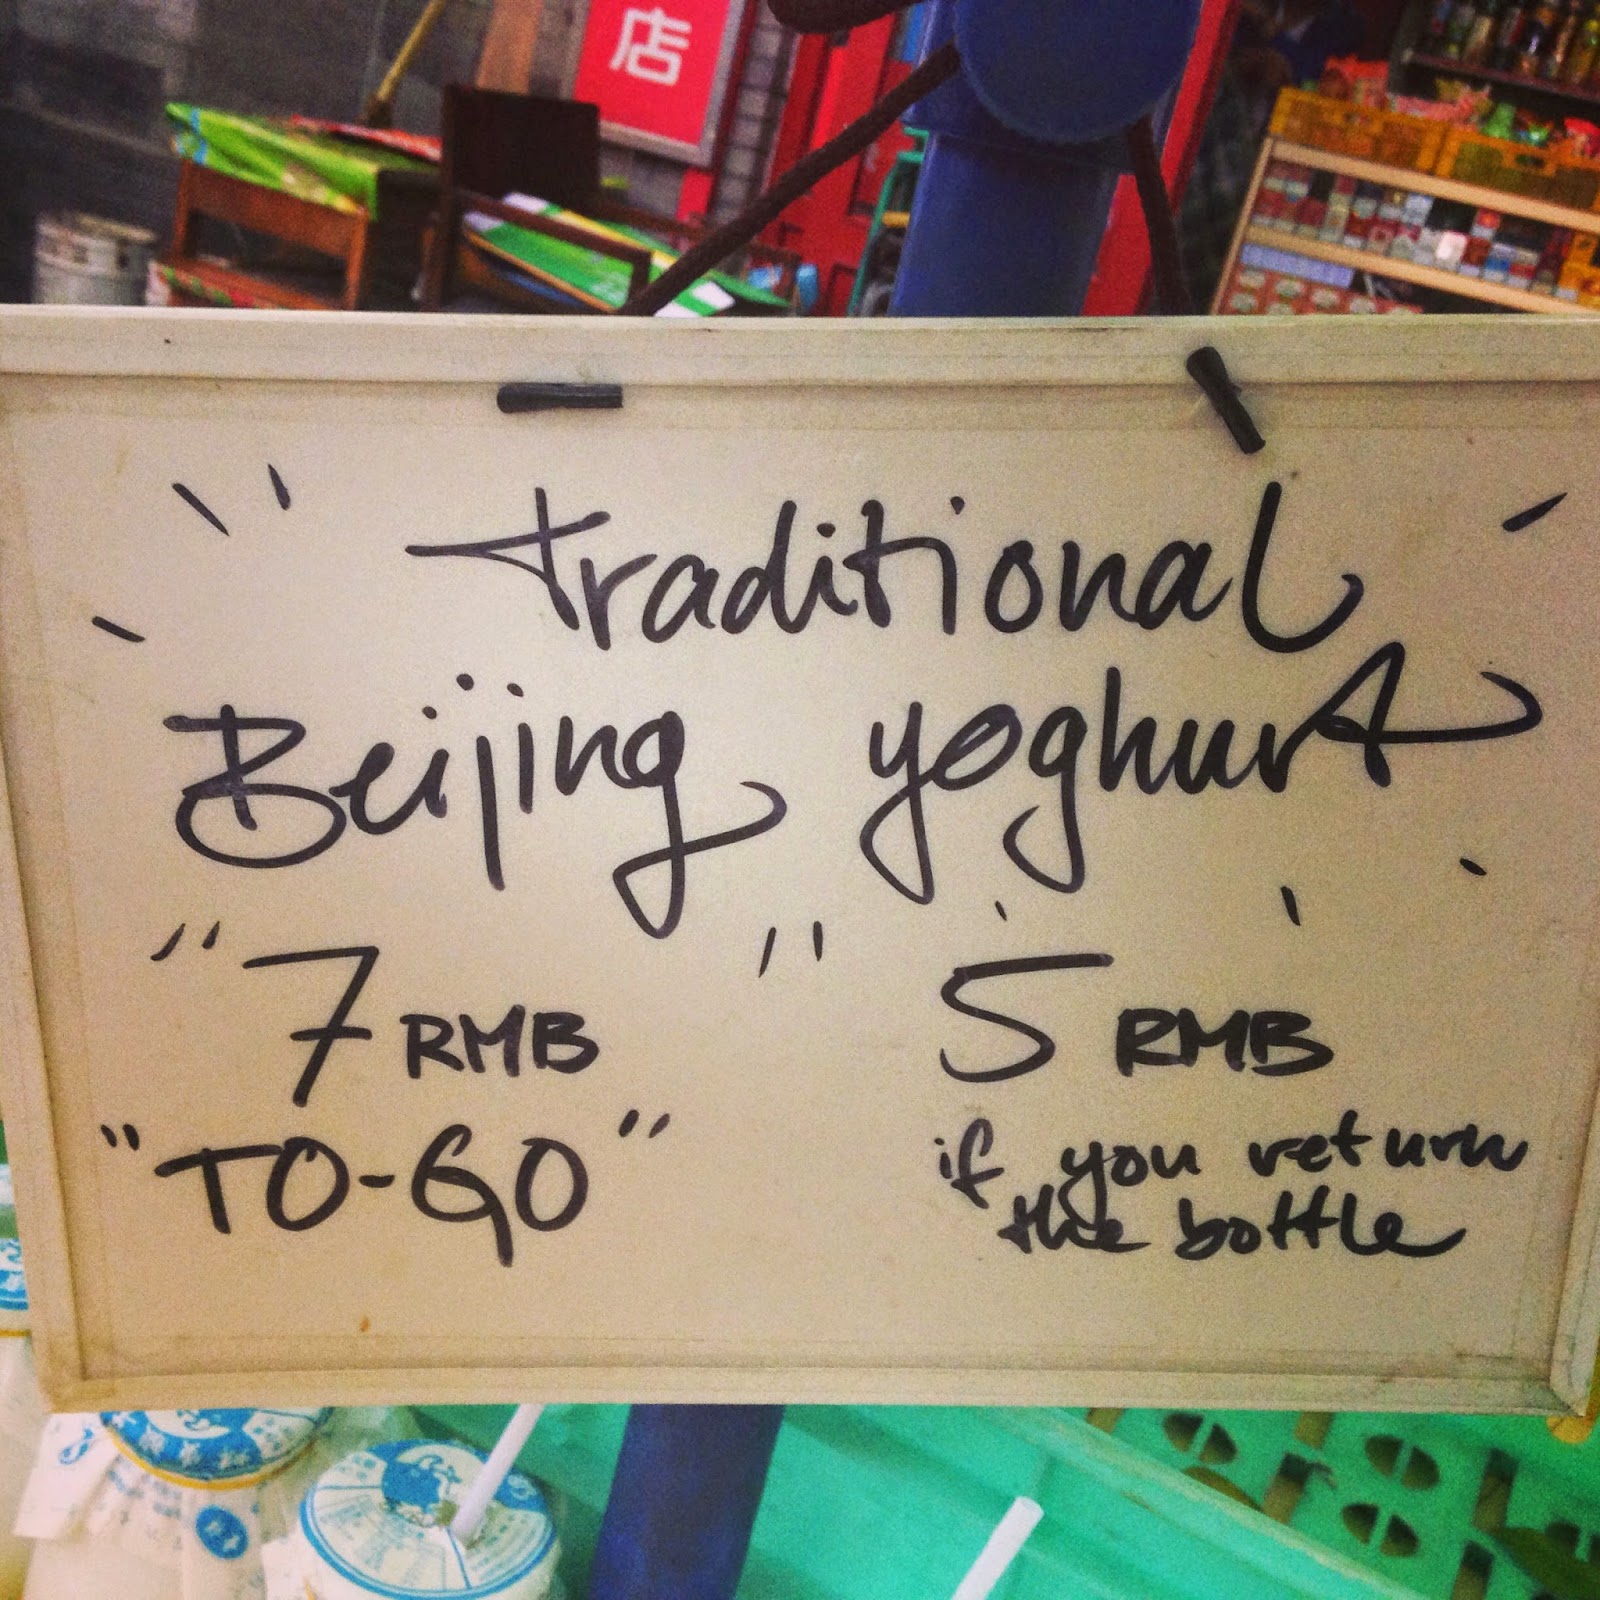 店
Traditional
Beijing yoghurt
7 RMB
"TO-GO"
5 RMB
if you return
the bottle